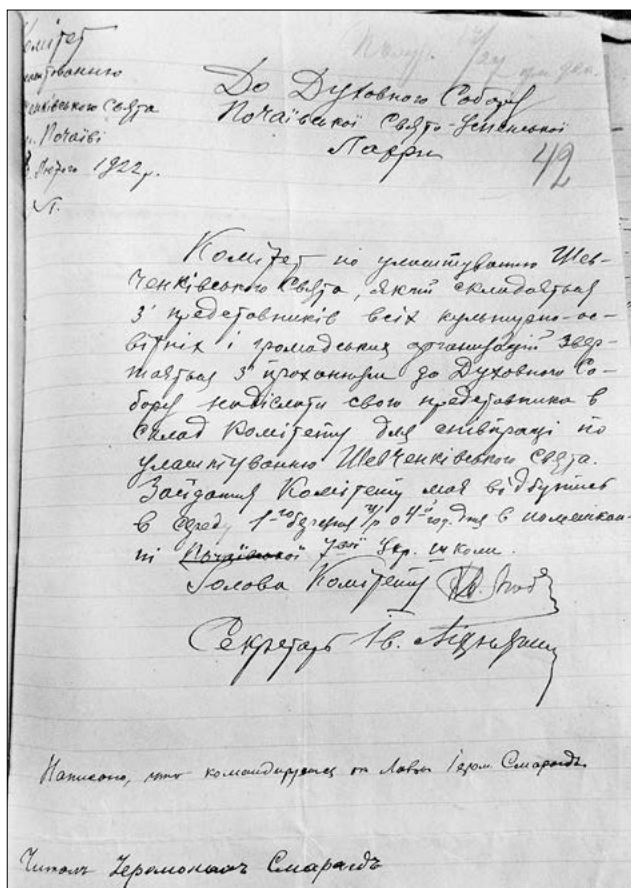 Комітет
влаштованню
Шевченківського Свята
м. Почаїві
Лютого 1922 р.
До Духовного Собору
Почаївської Свято-Успенської
Лаври
42
Комітет по улаштуванню Шев-
ченківського Свята, який складається
з предстовників всіх культурно-ос-
вітніх і громадських організацій звер-
тається з проханням до Духовного Со-
бору надіслати свого предстовника в
склад Комітету для співпраці по
улаштуванню Шевченківського Свята.
Засідання Комітету має відбутись
в середу 1-го березня ц/р о 4-й год. дня в помешкан-
ні Почаївської Укр. школи.
Голова Комітету
Секретарь Ів.
Написано, что командируется от Лавры Іером. Смарагдъ
Читалъ Іеромонахъ Смарагдъ